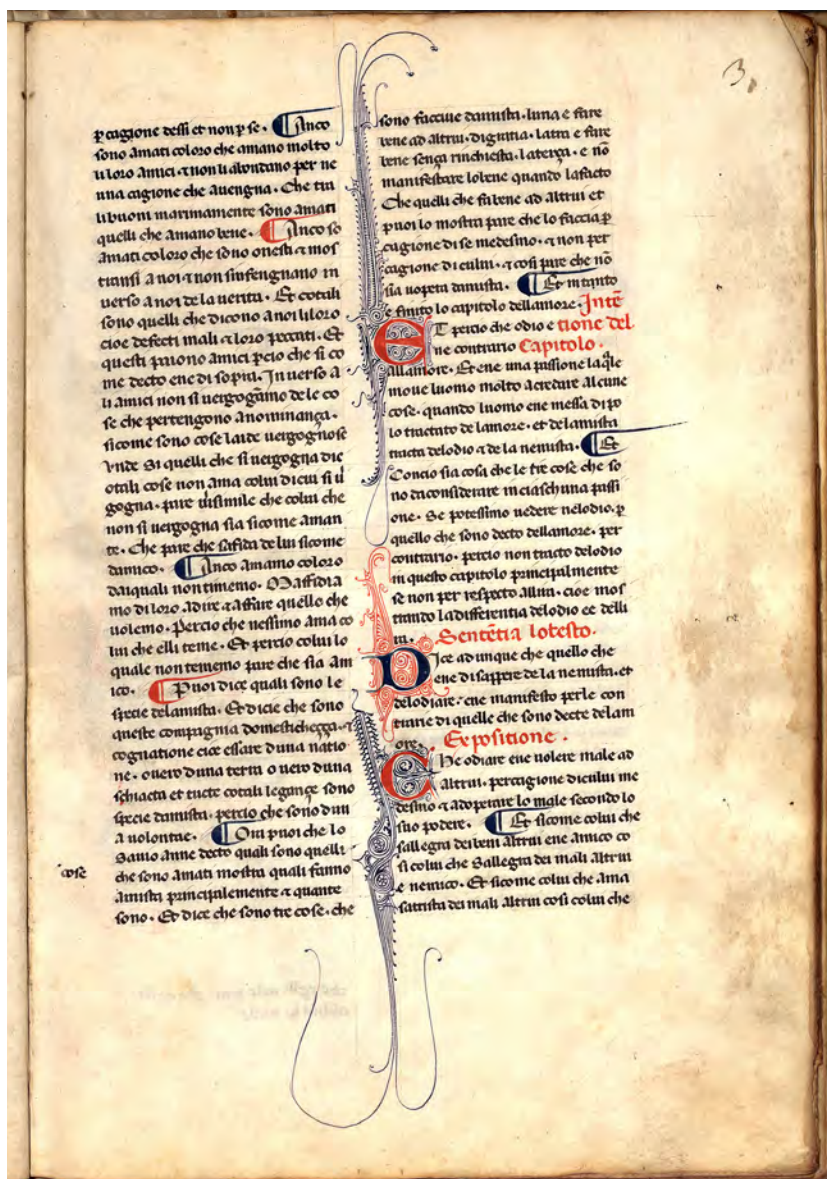 3
p cagione dessi et non p se. Anco
sono amati coloro che amano molto
li loro amici 7 non li abondano per ne
una cagione che auengna. Che tra
li buoni maximamente sono amati
quelli che amano bene. Anco so
amati coloro che sono onesti 7 mos
transi a noi 7 non sinfengnano in
uerso a noi de la uerita. Et cotali
sono quelli che dicono a noi li loro
cioe defecti mali 7 loro peccati. Et
questi paiono amici pcio che si co
me decto ene di sopra. In uerso a
li amici non si uergognamo de le co
se che pertengono a nominança.
sicome sono cose laide uergognose
Vnde Si quelli che si uergogna dic
otali cose non ama colui di cui si u
gogna. pare uisimile che colui che
non si uergogna sia sicome aman
te. Che pare che safida de lui sicome
damico. Anco amamo coloro
daiquali non timemo. Maffidia
mo di loro adire 7 affare quello che
uolemo. Percio che nessimo ama co
lui che elli teme. Et percio colui lo
quale non tememo pare che sia am
ico. Puoi dice quali sono le
specie delamista. Et dicie che sono
queste compagnia domestichezça. 7
cognatione cioe essare duna natio
ne. ouero duna terra o uero duna
schiacta et tucte cotali legançe sono
specie damista. percio che sono dun
a uolontae. Ora puoi che lo
Sauio anne decto quali sono quelli
cose
che sono amati mostra quali fanno
amista principalemente 7 quante
sono. Et dice che sono tre cose. che
sono facciue damista. luna e fare
bene ad altrui. dignitia. latra e fare
bene sença rinchiesta. laterça. e nō
manifestare lobene quando lafacto
Che quelli che fa bene ad altrui et
puoi lo mostra pare che lo faccia p
cagione di se medesimo. 7 non per
cagione di cului. 7 cosi pare che nō
sia uopera damista. Et in tanto
e finito lo capitolo dellamore. Intē
tione del
Capitolo.
ET percio che odio e
ne contrario
allamore. Et ene una passione laqle
moue luomo molto acredare alcune
cose. quando luomo ene messa dipo
lo tractato de lamore. et delamista
tracta delodio 7 de la nemista. Et
Concio sia cosa che le tre cose che so
no da considerare in ciaschuna passi
one. Se potessimo uedere nelodio. p
quello che sono decto dellamore. per
contrario. percio non tracto delodio
in questo capitolo principalmente
se non per respecto allira. cioe mos
trando la differentia delodio et delli
ra. Sentētia lotesto.
Dice adunque che quello che
ene di sappere de la nemista. et
delodiare. ene manifesto per le con
trarie di quelle che sono decte delam
ore. Expositione.
Che odiare ene uolere male ad
altrui. per cagione dicului me
desimo 7 adoperare lo male secondo lo
suo podere. Et sicome colui che
sallegra dei beni altrui ene amico co
si colui che Sallegra dei mali altrui
e nemico. Et sicome colui che ama
sattrista dei mali altrui cosi colui che